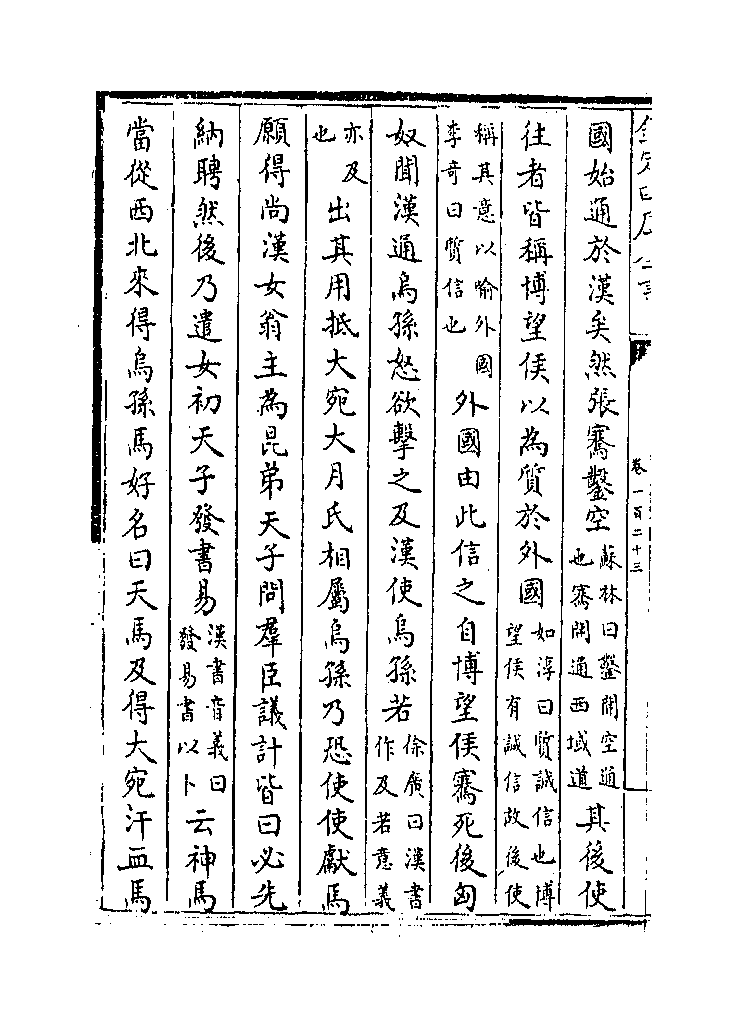 欽定四庫全書
卷一百二十三
國始通於漢矣然張騫鑿空蘇林曰鑿開空通也騫開通西域道其後使
往者皆稱博望侯以為質於外國如淳曰質誠信也博望侯有誠信故後使
稱其意以喻外國李奇曰質信也外國由此信之自博望侯騫死後匈
奴聞漢通烏孫怒欲擊之及漢使烏孫若徐廣曰漢書作及若意義
亦及也出其用抵大宛大月氏相屬烏孫乃恐使使獻馬
願得尚漢女翁主為昆弟天子問羣臣議計皆曰必先
納聘然後乃遣女初天子發書易漢書音義曰發易書以卜云神馬
當從西北來得烏孫馬好名曰天馬及得大宛汗血馬